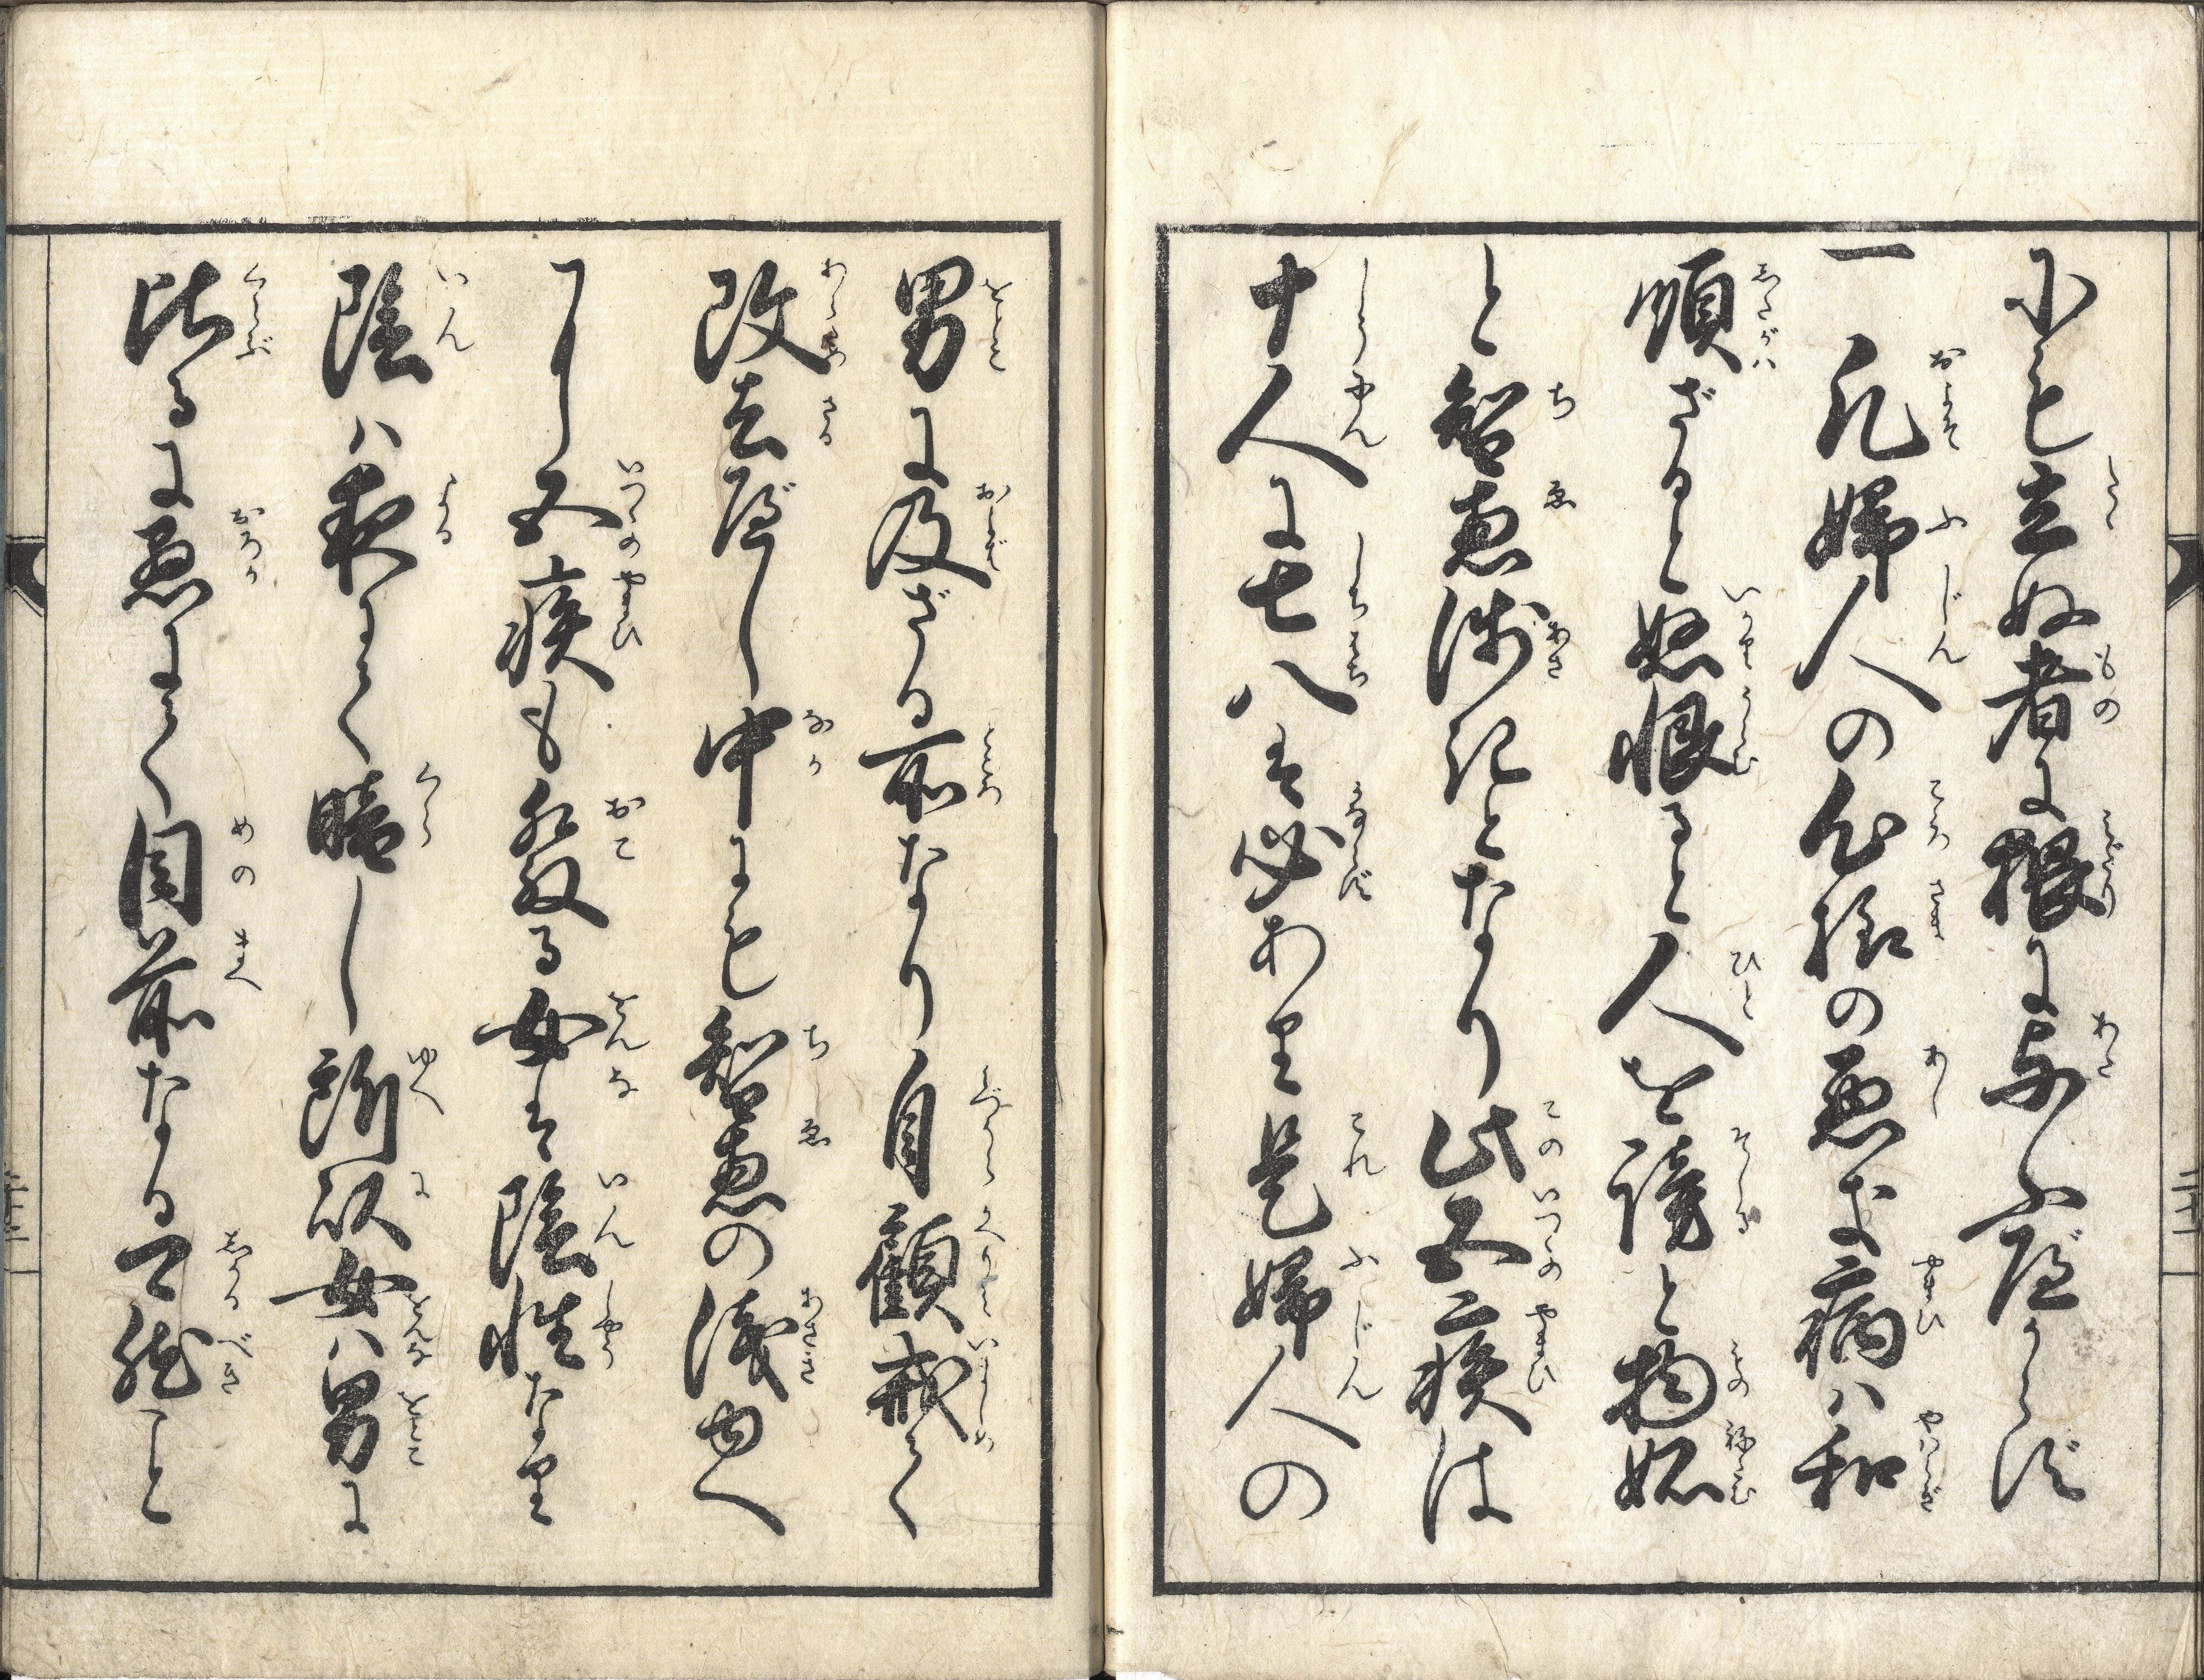 にも立ぬ者に猥に与ふべからず
一凡婦人の心様の悪き病ハ和
順ざると怒恨ると人を謗と物妬
と智恵浅きとなり此五疾は
十人に七八は必あり是婦人の
男に及ざる所なり自顧戒て
改去べし中にも智恵の浅ゆへ
に五疾も発る女は陰性なり
陰ハ夜にて暗し所以女ハ男に
比るに愚にて目前なる可然こと